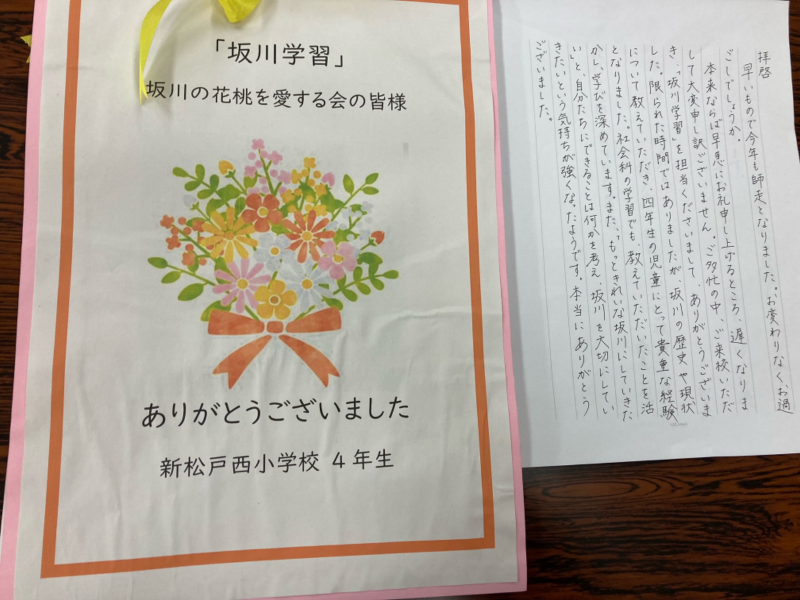 「坂川学習」
坂川の花桃を愛する会の皆様
ありがとうございました
新松戸西小学校 4年生
拝啓
早いもので今年も師走となりました。お変わりなくお過
ごしでしょうか。
本来ならば早急にお礼申し上げるところ、遅くなりま
して大変申し訳ございません。ご多忙の中、ご来校いただ
き、「坂川学習」を担当くださいまして、ありがとうございま
した。限られた時間ではありましたが、坂川の歴史や現状
について教えていただき、四年生の児童にとって貴重な経験
となりました。社会科の学習でも、教えていただいたことを活
かし、学びを深めています。また、"もっときれいな坂川にしていきた
い"と、自分たちにできることは何かを考え、坂川を大切にしてい
きたいという気持ちが強くなったようです。本当にありがとう
ございました。